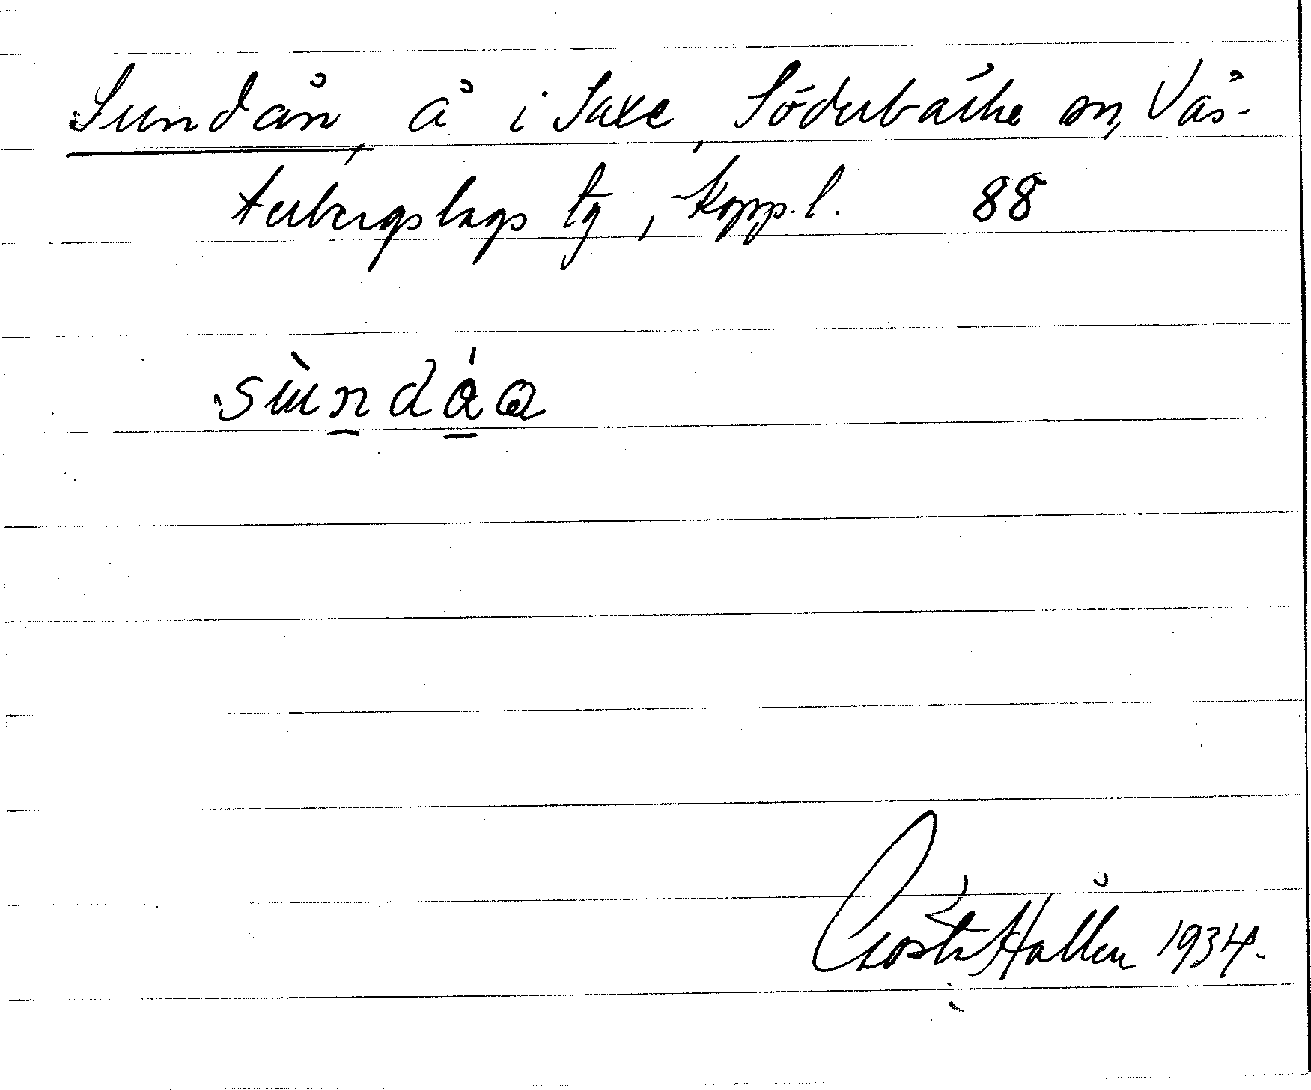 Sundån, å i Saxe, Söderbärke sn, Väs-
terbergslags tg, Kopp. l. 88
sùndáa
Gösta Hållén 1934.